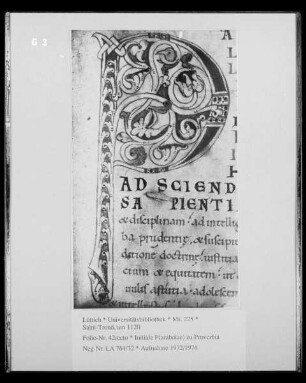 G 3
P
A
L
L
AD SCIEND
SA PIENTI
& disciplinam · ad intellig
ba prudentię · & suscipi
datione doctrinę · iustitia
cium & equitatem · ut
nulis astutia · adolescen
Lüttich * Universitätsbibliothek * Ms. 225 *
Saint-Trond, um 1120
Folio-Nr. 42recto * Initiale P(arabolae) zu Proverbia
Neg-Nr. LA 764/32 * Aufnahme 1972/1976